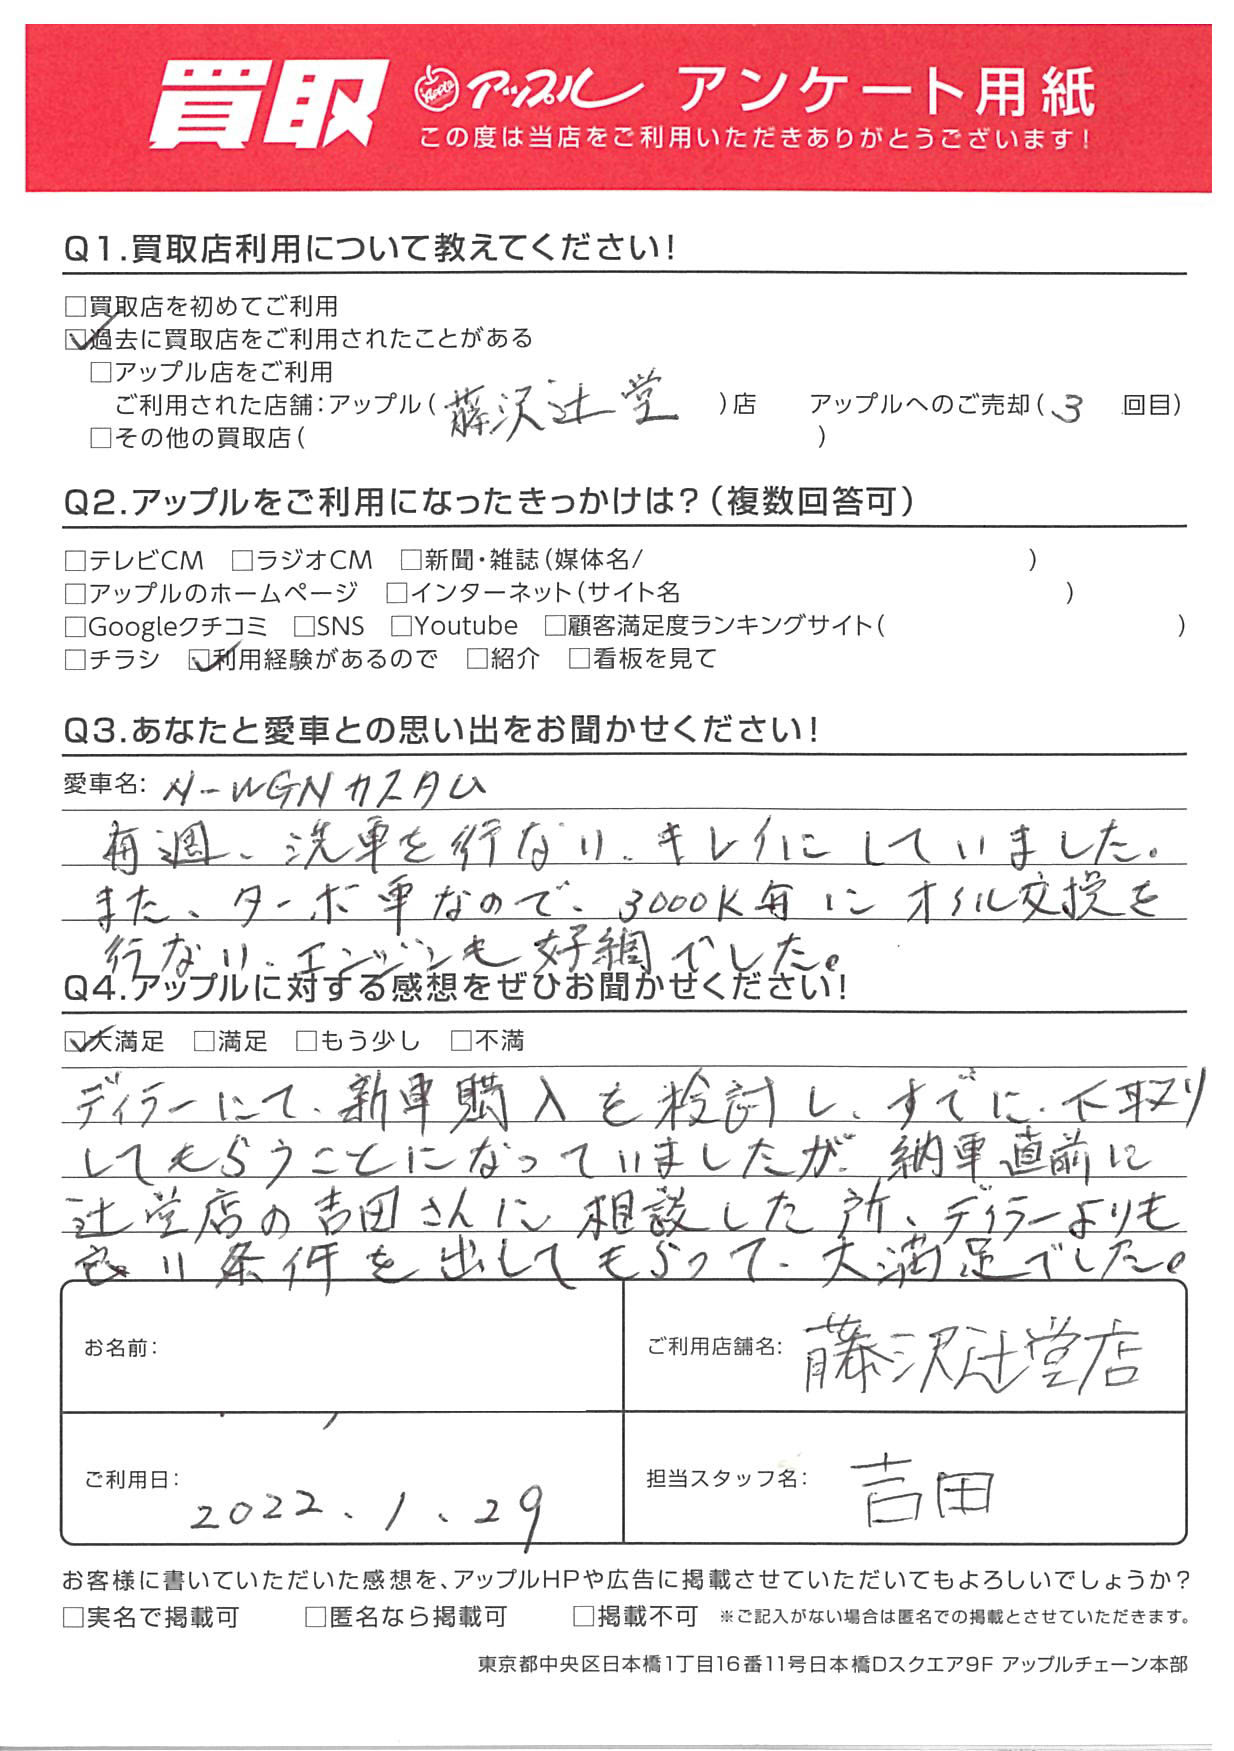 買取 Apple アップル アンケート用紙
この度は当店をご利用いただきありがとうございます!
Q1.買取店利用について教えてください!
□買取店を初めてご利用
☑過去に買取店をご利用されたことがある
□アップル店をご利用
ご利用された店舗:アップル(藤沢辻堂)店 アップルへのご売却(3 回目)
□その他の買取店( )
Q2.アップルをご利用になったきっかけは?(複数回答可)
□テレビCM □ラジオCM □新聞・雑誌(媒体名/ )
□アップルのホームページ □インターネット(サイト名 )
□Googleクチコミ □SNS □Youtube □顧客満足度ランキングサイト( )
□チラシ ☑利用経験があるので □紹介 □看板を見て
Q3.あなたと愛車との思い出をお聞かせください!
愛車名: N-WGNカスタム
毎週、洗車を行ない、キレイにしていました。
また、ターボ車なので、3000K毎にオイル交換を
行ない、エンジンも好調でした。
Q4.アップルに対する感想をぜひお聞かせください!
☑大満足 □満足 □もう少し □不満
ディラーにて、新車購入を検討し、すでに、下取り
してもらうことになっていましたが、納車直前に
辻堂店の吉田さんに相談した所、ディラーよりも
良い条件を出してもらって、大満足でした。
お名前: ご利用店舗名: 藤沢辻堂店
ご利用日: 2022.1.29 担当スタッフ名: 吉田
お客様に書いていただいた感想を、アップルHPや広告に掲載させていただいてもよろしいでしょうか?
□実名で掲載可 □匿名なら掲載可 □掲載不可 ※ご記入がない場合は匿名での掲載とさせていただきます。
東京都中央区日本橋1丁目16番11号日本橋Dスクエア9F アップルチェーン本部